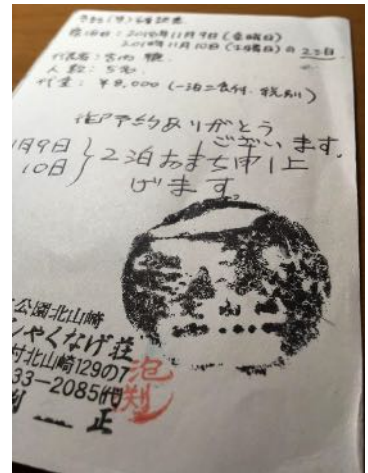 宿泊日：2018年11月9日（金曜日）
2018年11月10日（土曜日）の 2泊
代表者：宮内
人数：5名
代金：¥8,000（一泊二食付、税別）
御予約ありがとう
ございます。
月9日
10日 } 2泊おまち申し上
げます。
公園北山崎
しゃくなげ荘
村北山崎129の7
33-2085(代)
正